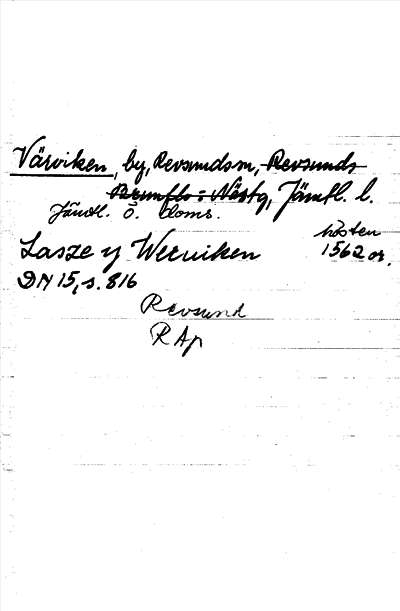 Värviken, by, Revsunds sn, Revsunds
Brunflo o. Näs tg, Jämtl. l.
Jämtl. ö. doms.
hösten
Lasze y Werviken 1562 or.
DN 15, s. 816
Revsund
RAp